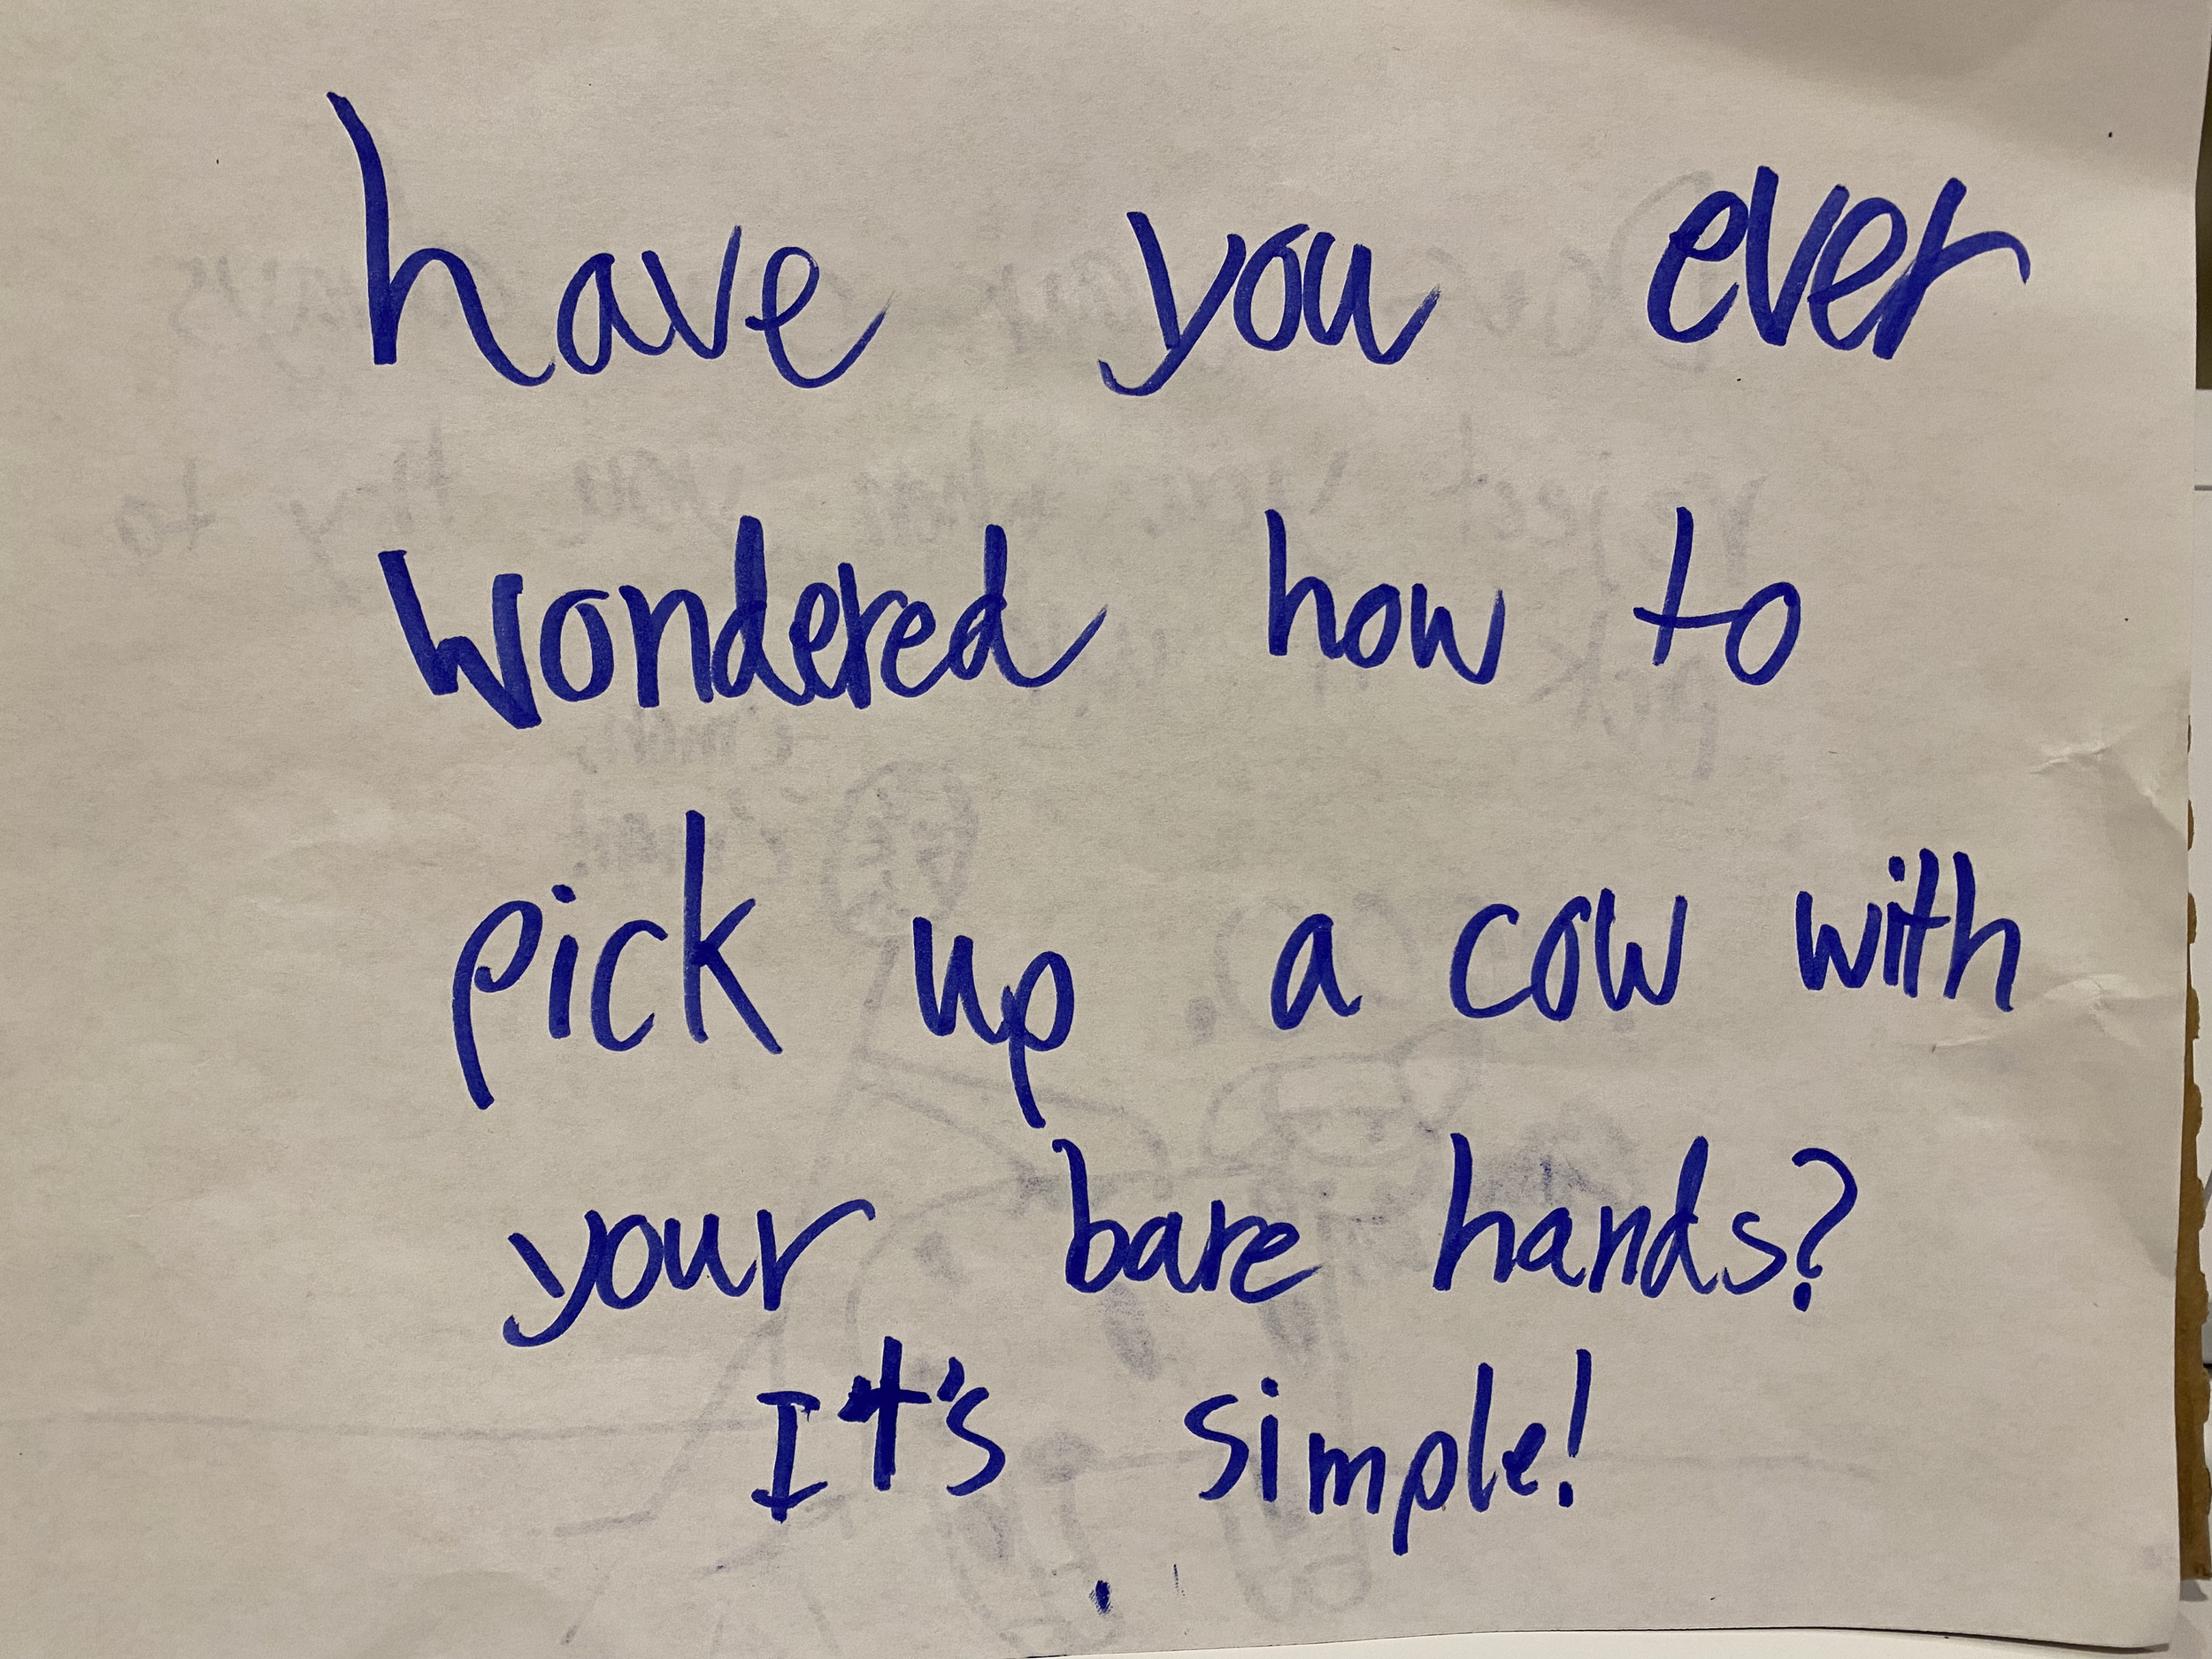 have you ever
wondered how to
pick up a cow with
your bare hands?
It's simple!